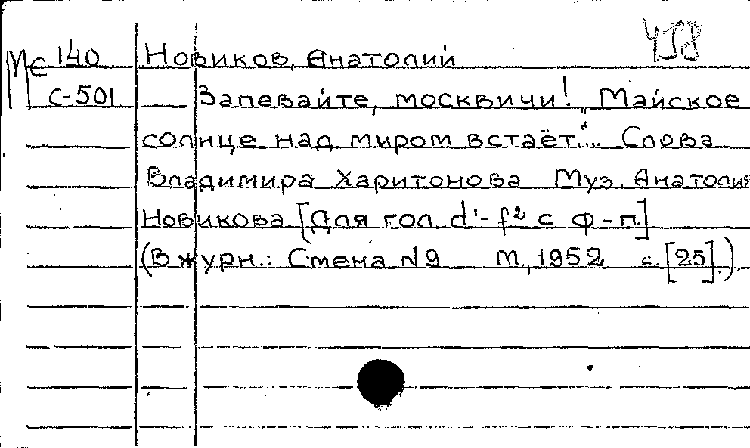 Мс 140 Новиков, Анатолий
С-501 Запевайте, москвичи! „Майское
солнце над миром встаёт"... Слова
Владимира Харитонова Муз. Анатолия
Новикова [Для гол. d¹-f² с ф-п.]
(В журн.: Смена №9 М., 1952 с. [25].)